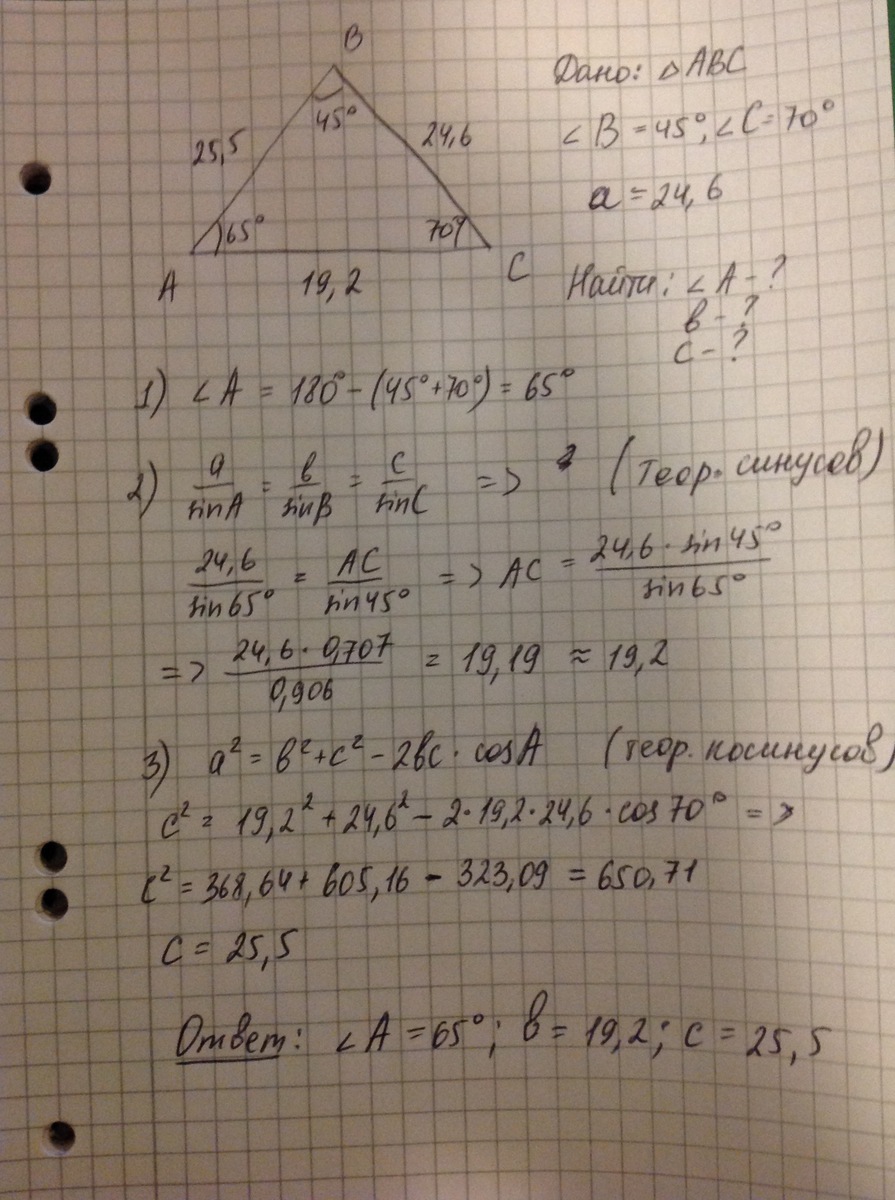 B
45°
25,5
24,6
65°
70°
A
19,2
C
Дано: △ABC
∠B = 45°, ∠C = 70°
a = 24,6
Найти: ∠A - ?
в - ?
c - ?
1) ∠A = 180° - (45° + 70°) = 65°
2) a/sinA = в/sinB = c/sinC => (теор. синусов)
24,6/sin65° = AC/sin45° => AC = 24,6 · sin45°/sin65°
=> 24,6 · 0,707/0,906 = 19,19 ≈ 19,2
3) a² = в² + c² - 2вc · cosA (теор. косинусов)
c² = 19,2² + 24,6² - 2·19,2·24,6 · cos70° =>
c² = 368,64 + 605,16 - 323,09 = 650,71
c = 25,5
Ответ: ∠A = 65°; в = 19,2; c = 25,5